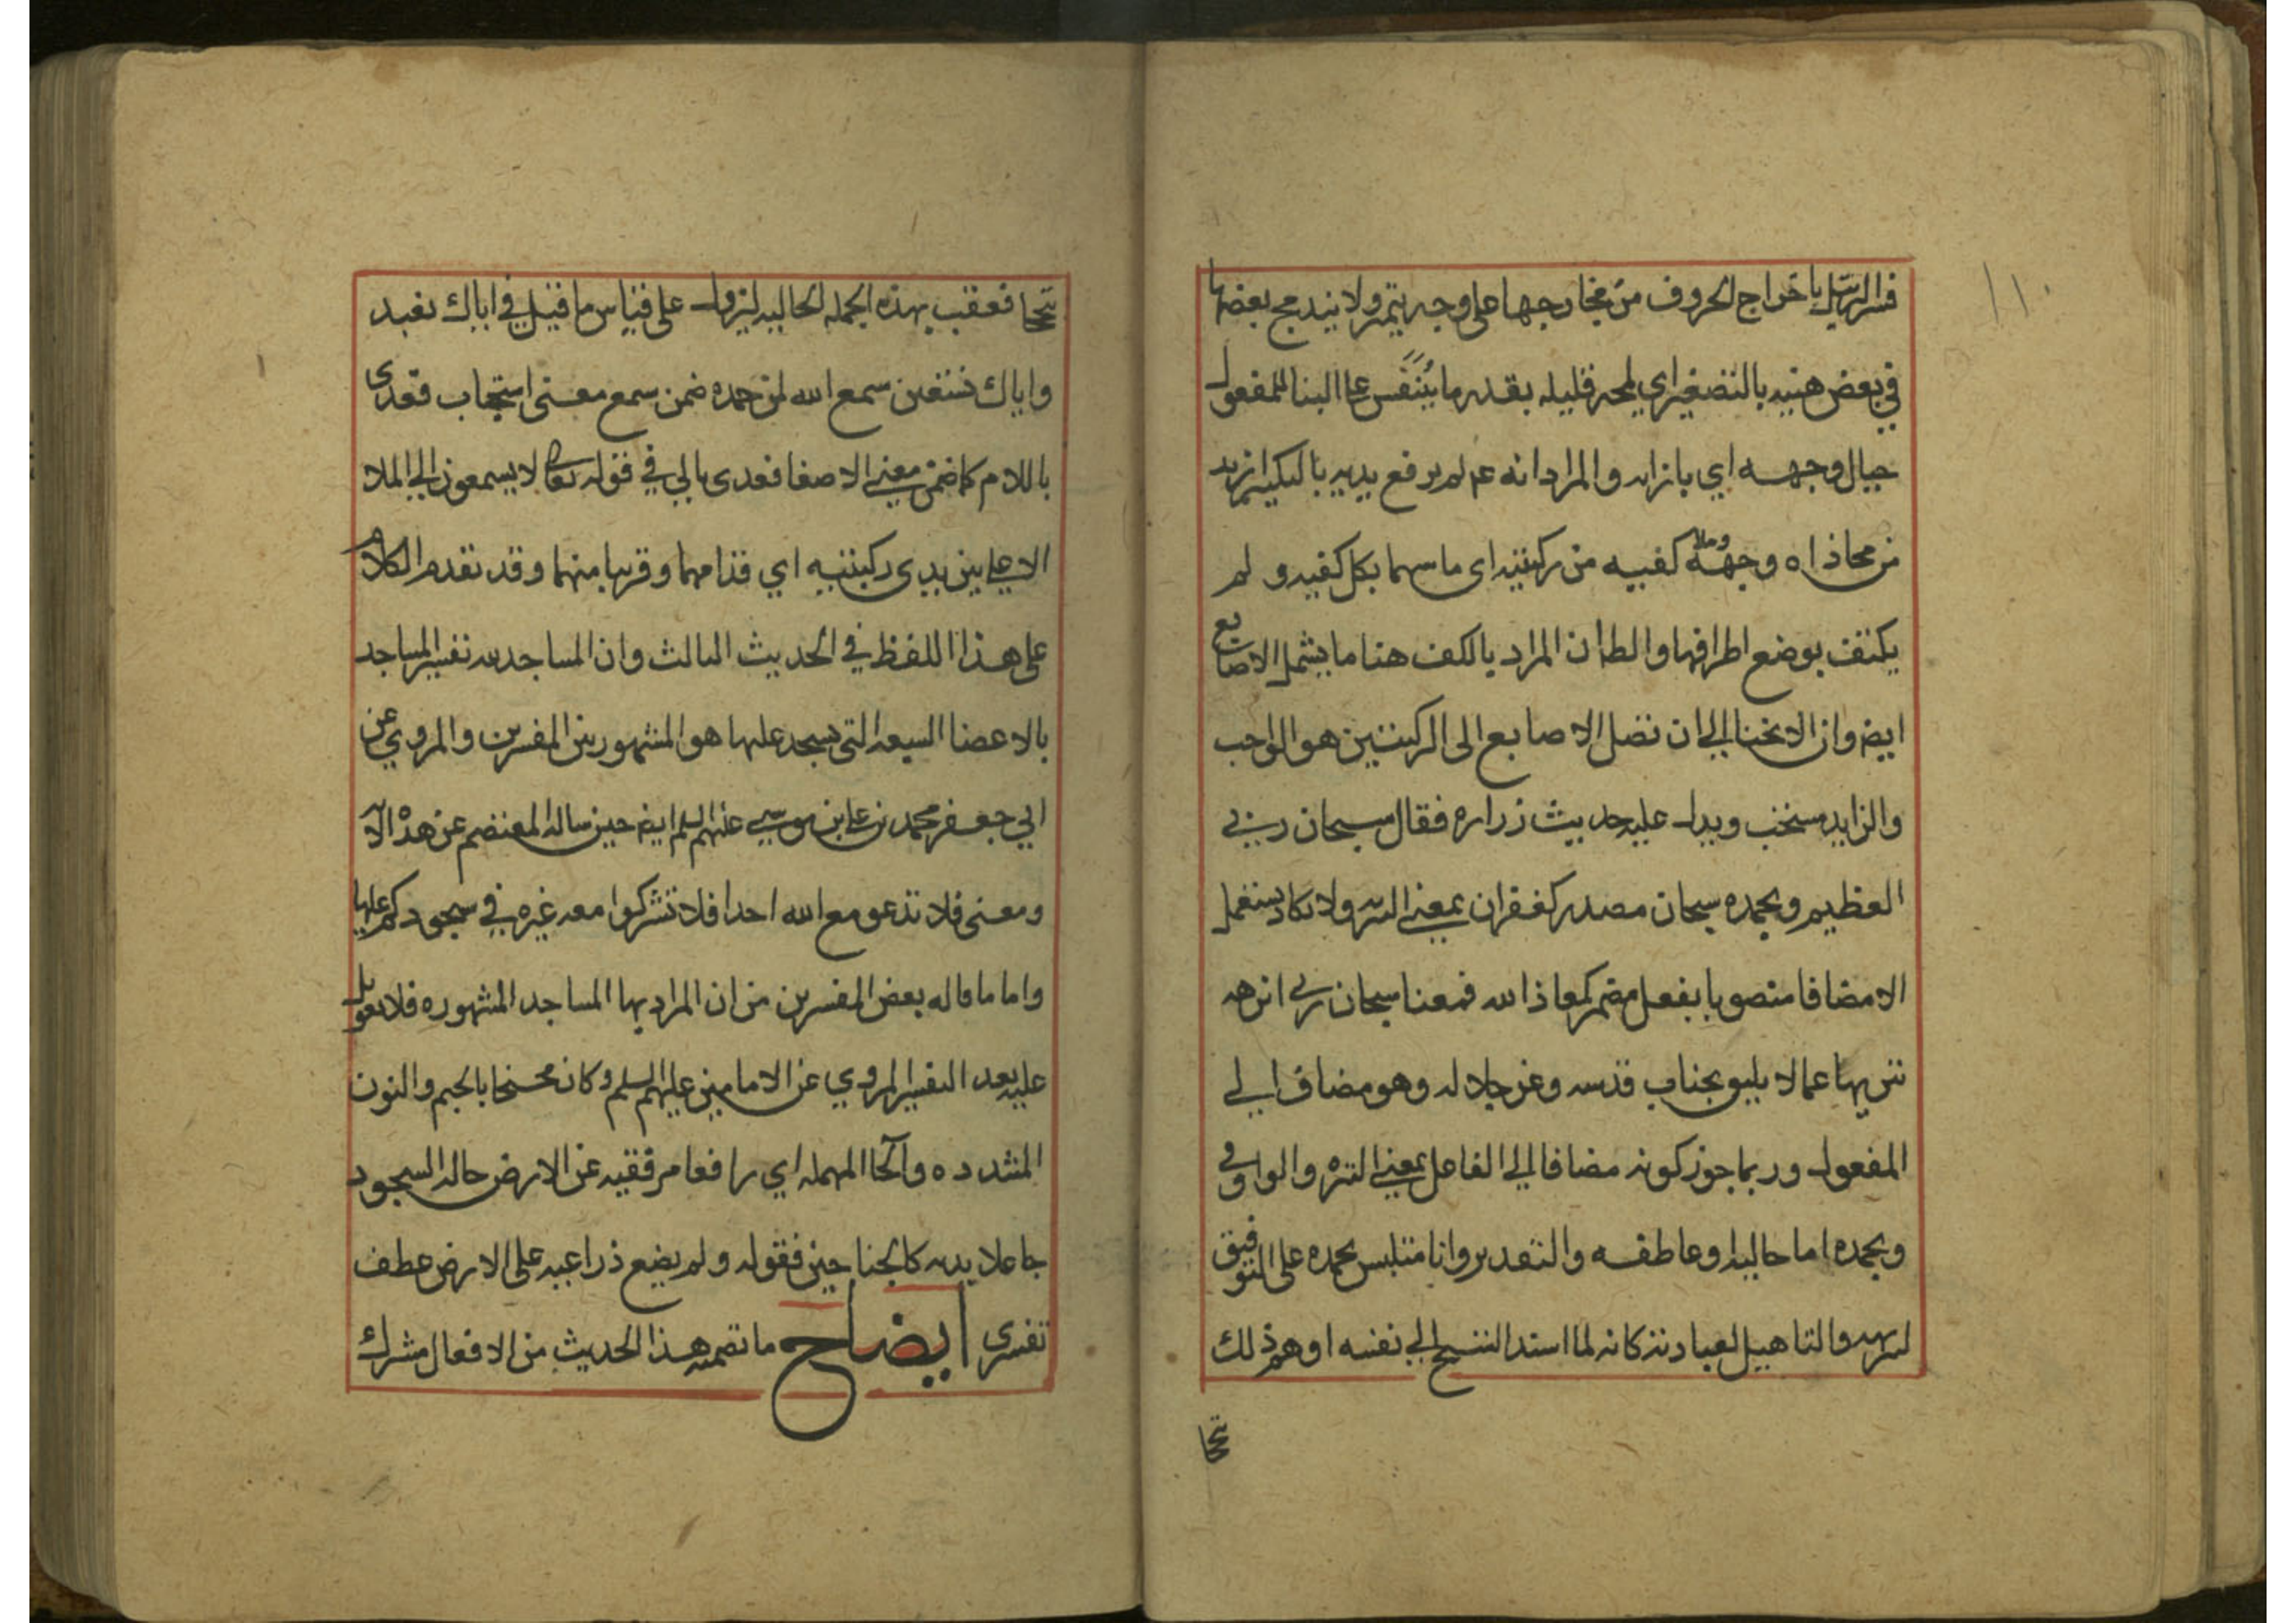 ١١٠
فسر الترتيل باخراج الحروف من مخارجها على وجه يتميز ولا يندمج بعضها
في بعض هنيه بالتصغير اي لمحه قليله بقدر ما يتنفس على البنا للمفعول
حيال وجهه اي بازايه والمراد انه عم لم يرفع يديه بالتكبير ازيد
من محاذاه وجهه وملا كفيه من ركبتيه اي ماسهما بكل كفيه و لم
يكتف بوضع اطرافها والظ ان المراد بالكف هنا ما يشمل الاصابع
ايضم وان الانحنا الي ان تصل الاصابع الى الركبتين هو الواجب
والزايد مستحب ويدل عليه حديث زراره فقال سبحان ربي
العظيم وبحمده سبحان مصدر كغفران بمعني التنزيه ولا يكاد يستعمل
الا مضافا منصوبا بفعل مضمر كمعاذ الله فمعنا سبحان ربي انزهه
تنزيها عما لا يليق بجناب قدسه وعز جلاله وهو مضاف الي
المفعول وربما جوز كونه مضافا الي الفاعل بمعني التنزه والواو في
وبحمده اما حاليه او عاطفه والتقدير وانا متلبس بحمده على التوفيق
لتنزيهه والتاهيل لعبادته كانه لما اسند التسبيح الي نفسه اوهم ذلك
تبجحا
تبجحا فعقب بهذه الجمله الحاليه ليزول على قياس ما قيل في اياك نعبد
واياك نستعين سمع الله لمن حمده ضمن سمع معنى استجاب فعدى
باللام كما ضمن معني الاصغا فعدى بالي في قوله تعالى لا يسمعون الي الملا
الاعلي بين يدي ركبتيه اي قدامهما وقريبا منهما وقد تقدم الكلام
على هذا اللفظ في الحديث الثالث وان المساجد لله تفسير المساجد
بالاعضا السبعه التي يسجد عليها هو المشهور بين المفسرين والمروي عن
ابي جعفر محمد بن علي بن موسي عليهم السلم ايضم حين ساله المعتصم عن هذه الايه
ومعنى فلا تدعو مع الله احدا فلا تشركوا معه غيره في سجودكم عليها
واما ما قاله بعض المفسرين من ان المراد بها المساجد المشهوره فلا يعول
عليه بعد التفسير المروي عن الامامين عليهم السلم وكان مجنحا بالجيم والنون
المشدده والحا المهمله اي رافعا مرفقيه عن الارض حاله السجود
جاعلا يديه كالجناحين فقوله ولم يضع ذراعيه على الارض عطف
تفسيري ايضاح ما تضمنه هذا الحديث من الافعال مشترك